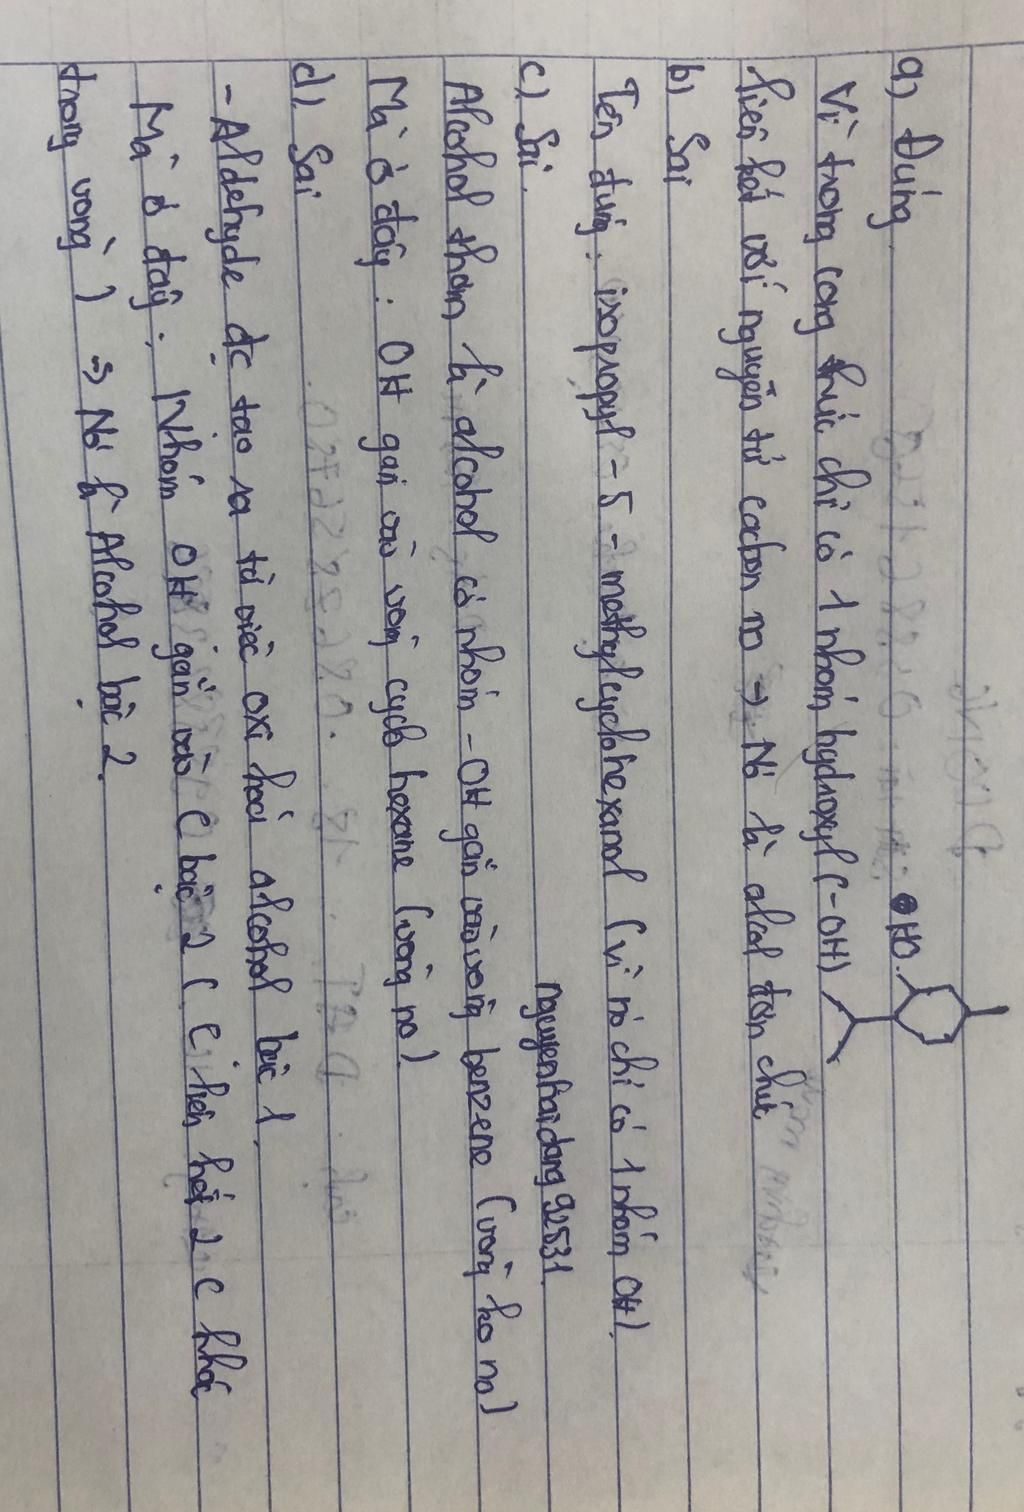 a) Đúng
HO
Vì trong công thức chỉ có 1 nhóm hydroxyl (-OH)
liên kết với nguyên tử cacbon no => Nó là alcol đơn chức
b) Sai
Tên đúng: isopropyl-5-methylcyclohexanol (vì nó chỉ có 1 nhóm OH).
c) Sai.
nguyenhaidang92531.
Alcohol thơm là alcohol có nhóm -OH gắn vào vòng benzene (vòng ko no)
Mà ở đây: OH gắn vào vòng cyclo hexane (vòng no)
d) Sai
- Aldehyde đc tạo ra từ việc oxi hoá alcohol bậc 1,
Mà ở đây: Nhóm OH gắn vào C bậc 2 (C liên kết 2 C khác
trong vòng) => Nó là Alcohol bậc 2.